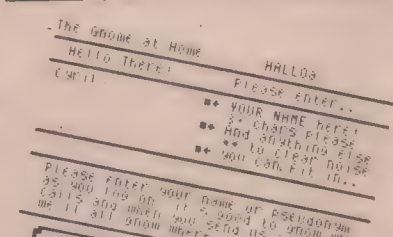 The Gnome at Home
HALLO
Hello There!
Please enter..
Cyril
YOUR NAME here!
chars please
And anything else
to clear noise
you can fit in..
Please enter your name or pseudonym
as you log on. it's good to gnome who
calls and when you send us
me it all gnome